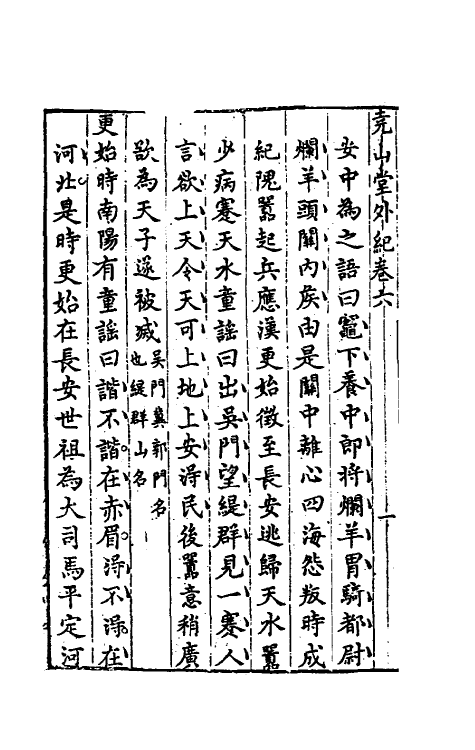 堯山堂外紀卷六　一
安中為之語曰竈下養中郎将爛羊胃騎都尉
爛羊頭關内矦由是關中離心四海怨叛時成
紀隗囂起兵應漢更始徵至長安逃歸天水囂
少病蹇天水童謡曰出吳門望緹群見一蹇人
言欲上天令天可上地上安淂民後囂意稍廣
欲為天子遂被滅吳門冀郭門名也緹群山名
更始時南陽有童謡曰諧不諧在赤眉淂不淂在
河北是時更始在長安世祖為大司馬平定河